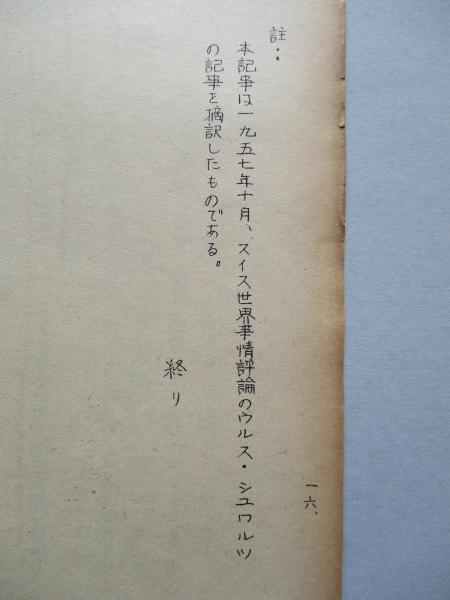 註：
本記事は一九五七年十月、スイス世界事情評論のウルス・シュワルツ
の記事を摘訳したものである。
終り
一六、